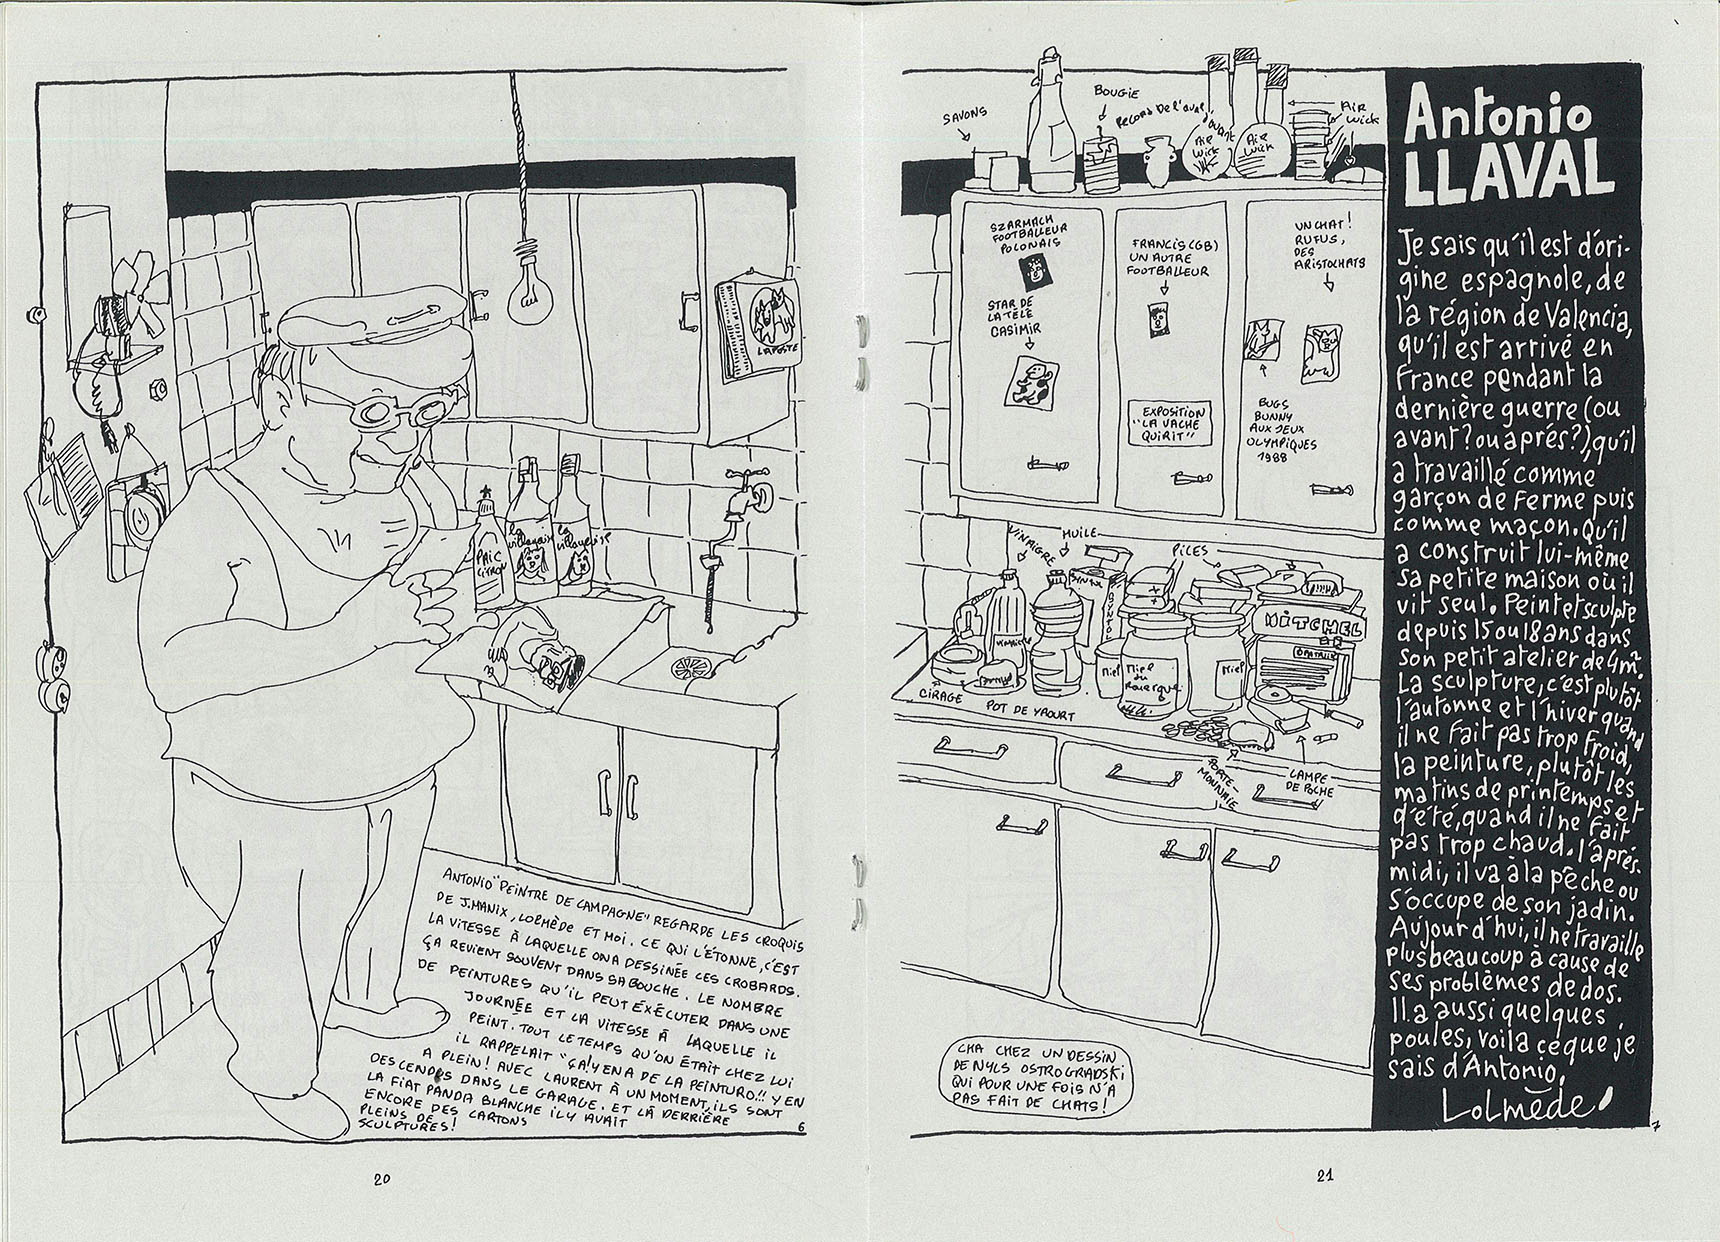 LAPOSTE
PAIC
CITRON
la
villageoise
la
villageoise
ANTONIO "PEINTRE DE CAMPAGNE" REGARDE LES CROQUIS
DE J.MANIX, LOLMÈDE ET MOI. CE QUI L'ÉTONNE, C'EST
LA VITESSE À LAQUELLE ON A DESSINÉE CES CROBARDS.
ÇA REVIENT SOUVENT DANS SA BOUCHE. LE NOMBRE
DE PEINTURES QU'IL PEUT ÉXÉCUTER DANS UNE
JOURNÉE ET LA VITESSE À LAQUELLE IL
PEINT. TOUT LE TEMPS QU'ON ÉTAIT CHEZ LUI
IL RAPPELAIT "ÇA! Y EN A DE LA PEINTURO!! Y EN
A PLEIN! AVEC LAURENT À UN MOMENT, ILS SONT
DESCENDUS DANS LE GARAGE. ET LÀ DERRIÈRE
LA FIAT PANDA BLANCHE IL Y AVAIT
ENCORE DES CARTONS
PLEINS DE
SCULPTURES!
6
20
SAVONS
BOUGIE
RECORD De l'aval
AIR
Wick
AIR
Wick
AIR
Wick
SZARMACH
FOOTBALLEUR
POLONAIS
STAR DE
LA TÉLÉ
CASIMIR
FRANCIS (GB)
UN AUTRE
FOOTBALLEUR
EXPOSITION
"LA VACHE
QUIRIT"
UN CHAT!
RUFUS,
DES
ARISTOCHATS
BUGS
BUNNY
AUX JEUX
OLYMPIQUES
1988
VINAIGRE
HUILE
PILES
VINAIGRE
MITCHEL
Miel
Miel
du
Rouergue
Miel
CIRAGE
POT DE YAOURT
PORTE-
MONNAIE
LAMPE
DE POCHE
CHA CHEZ UN DESSIN
DE NYLS OSTROGRADSKI
QUI POUR UNE FOIS N'A
PAS FAIT DE CHATS!
Antonio
LLAVAL
Je sais qu'il est d'ori-
gine espagnole, de
la région de Valencia,
qu'il est arrivé en
France pendant la
dernière guerre (ou
avant? ou aprés?), qu'il
a travaillé comme
garçon de Ferme puis
comme maçon. Qu'il
a construit lui-même
sa petite maison où il
vit seul. Peint et sculpte
depuis 15 ou 18 ans dans
son petit atelier de 4m².
La sculpture, c'est plutôt
l'automne et l'hiver quand
il ne fait pas trop froid,
la peinture, plutôt les
matins de printemps et
d'été, quand il ne fait
pas trop chaud. l'aprés-
midi, il va à la pêche ou
s'occupe de son jadin.
Aujourd'hui, il ne travaille
plus beaucoup à cause de
ses problèmes de dos.
Il a aussi quelques
poules, voilà ce que je
sais d'Antonio.
Lolmède
7
21